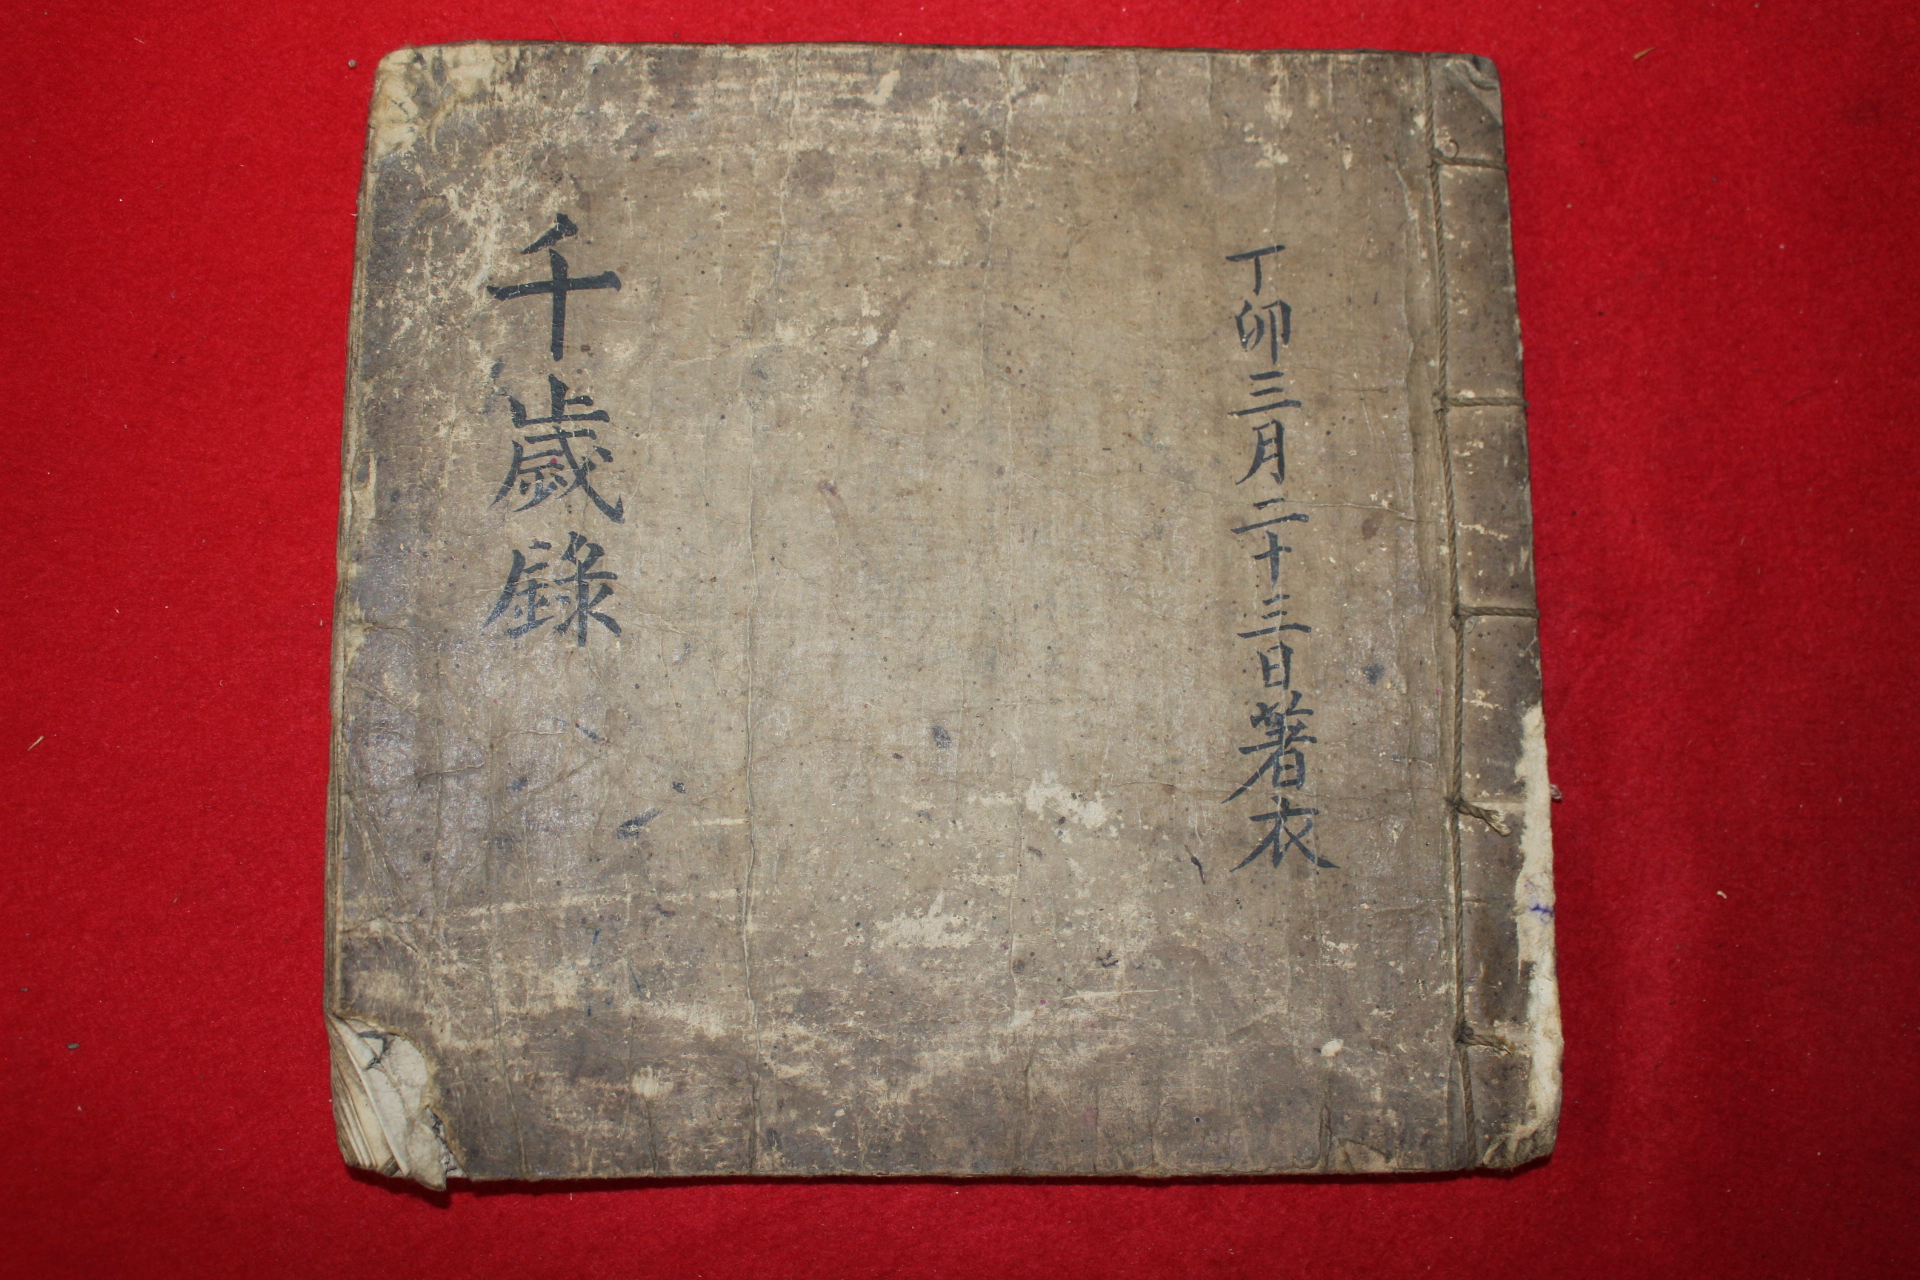 丁卯三月二十三日著衣
千歲錄